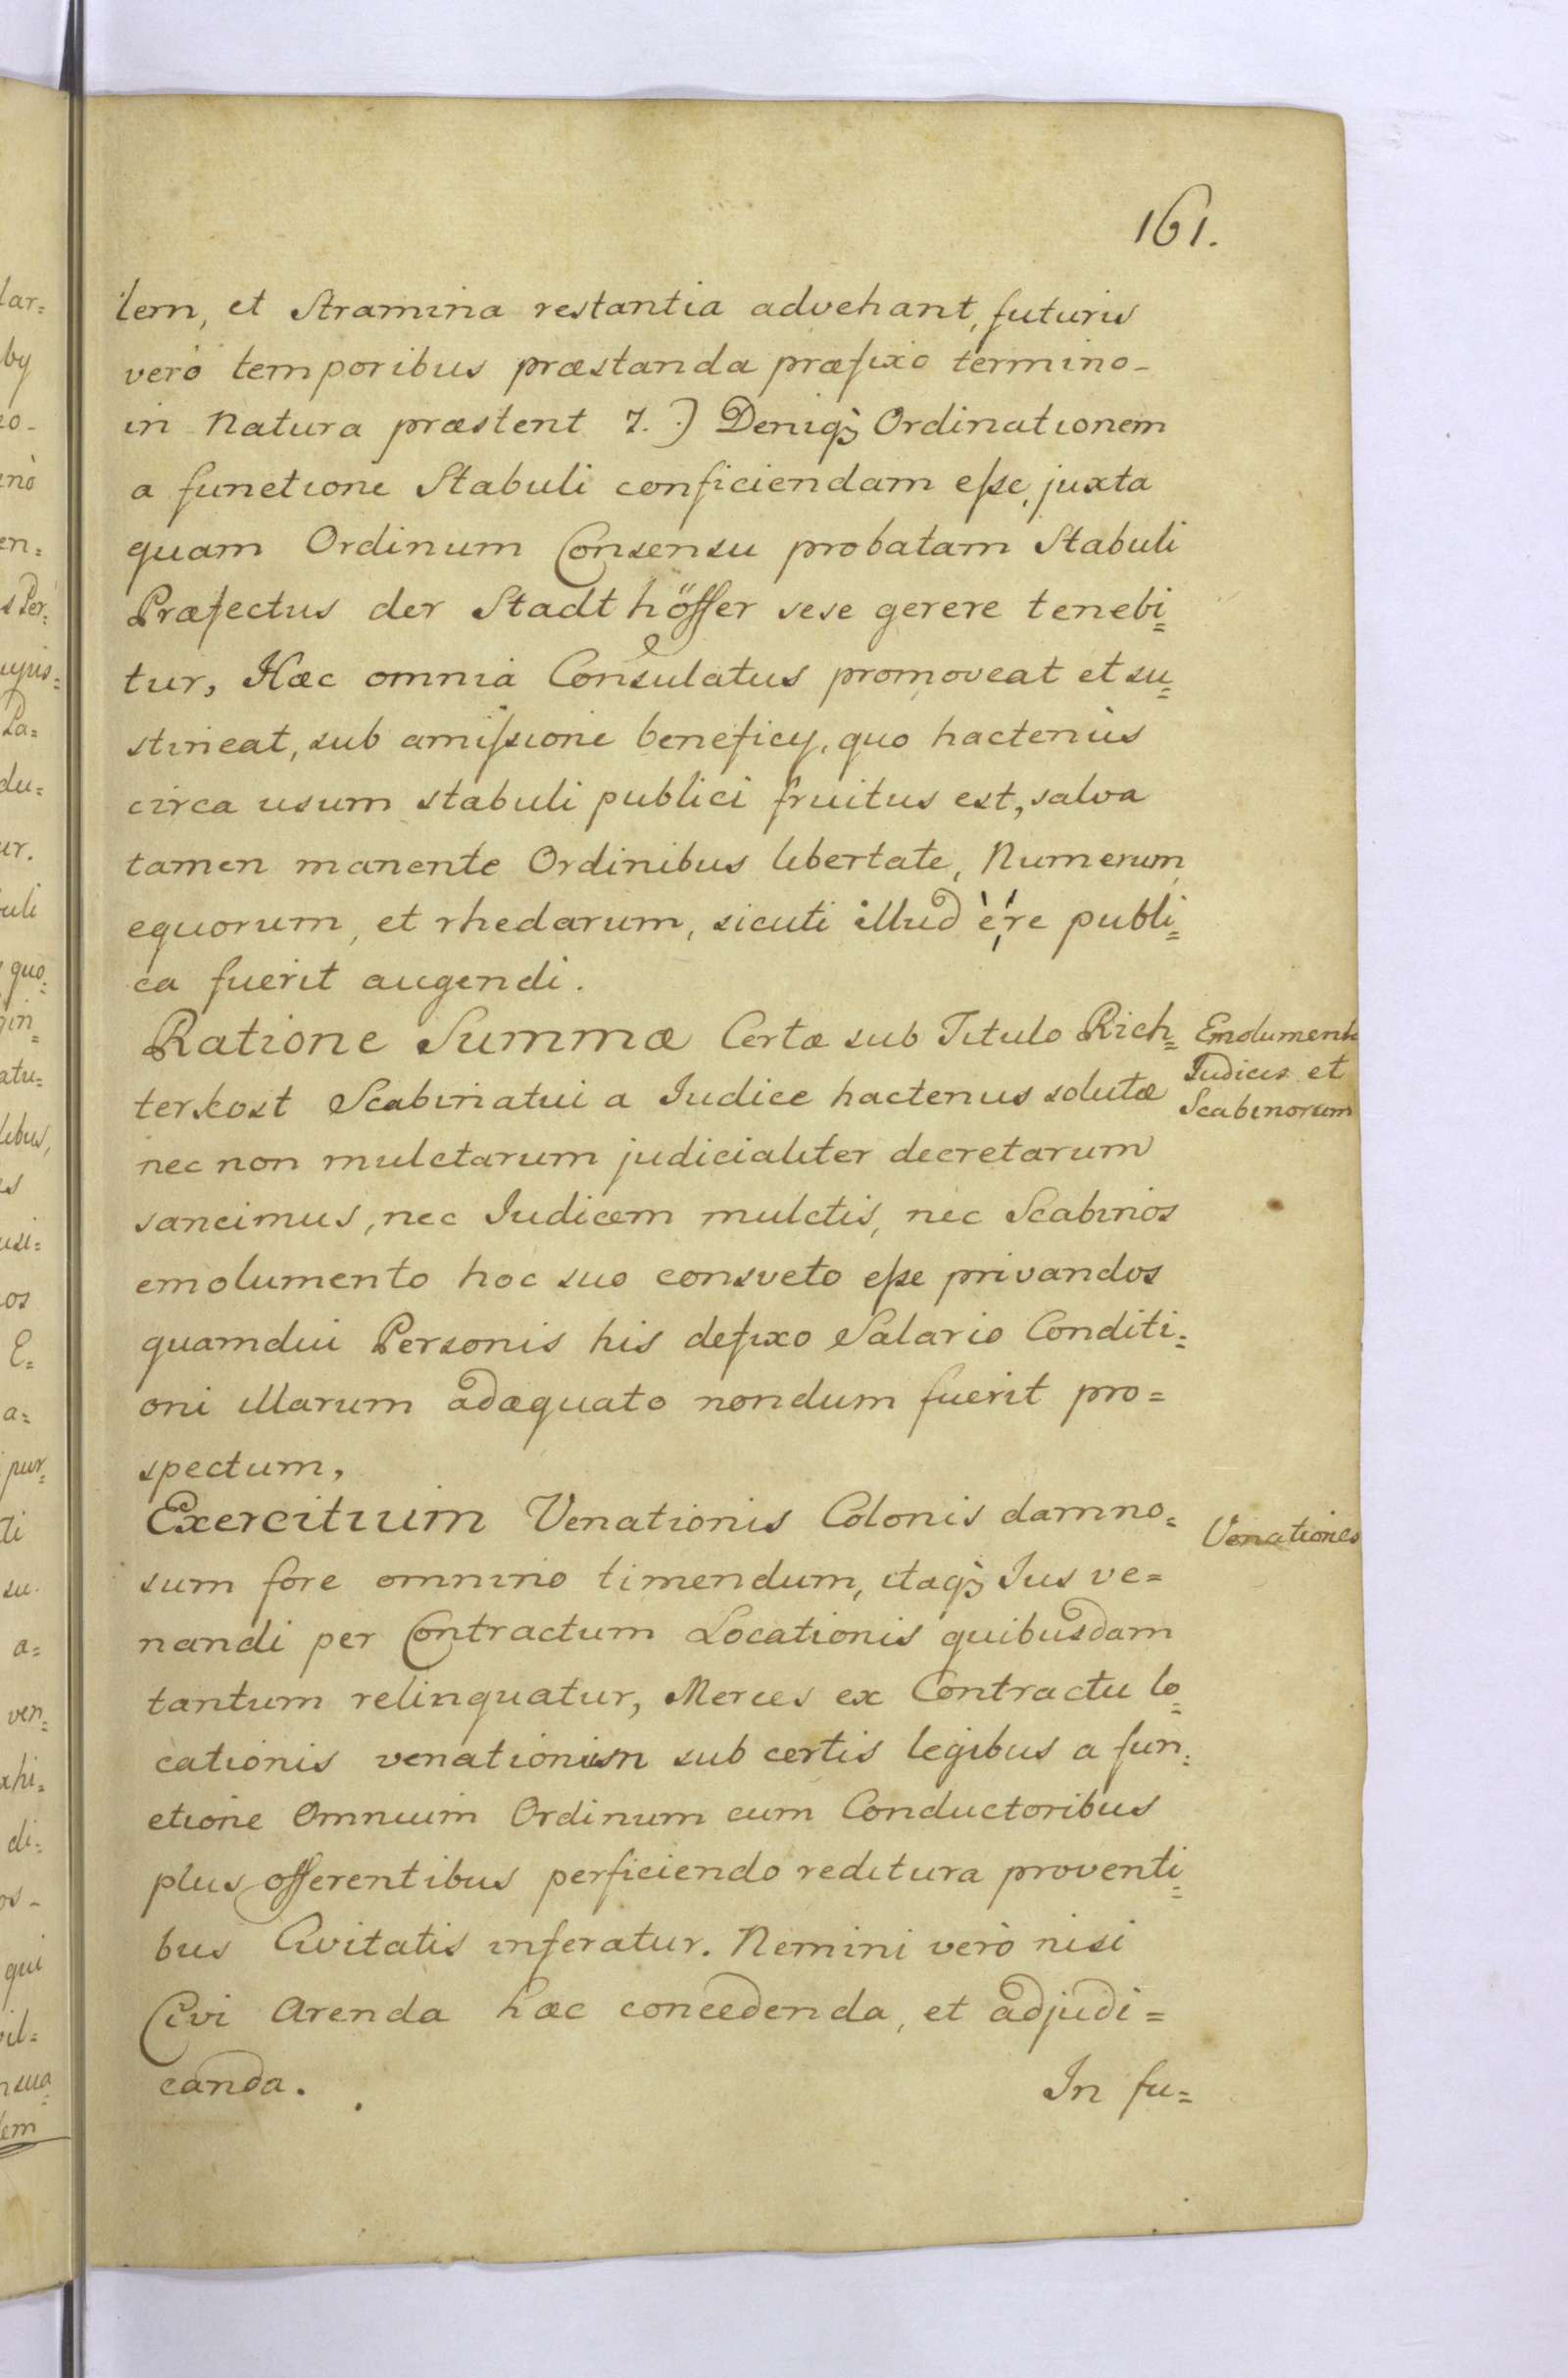 161.
lem, et Stramina restantia advehant, futuris
verò temporibus præstanda præfixo termino-
in Natura præstent 7.) Deniqꝫ Ordinationem
a functione Stabuli conficiendam eſse, juxta
quam Ordinum Consensu probatam Stabuli
Præfectus der Stadt höffer sese gerere tenebi=
tur, Hæc omnia Consulatus promoveat et su=
stineat, sub amiſsione beneficy, quo hactenùs
circa usum stabuli publici fruitus est, salva
tamen manente Ordinibus libertate, Numerum
equorum, et rhedarum, sicuti illud è re publi=
ca fuerit augendi.
Ratione Summæ Certæ sub Titulo Rich=
terkost Scabinatui a Iudice hactenus solutæ
nec non mulctarum judicialiter decretarum
sancimus, nec Iudicem mulctis, nec Scabinos
emolumento hoc suo consveto eſse privandos
quamdiu Personis his defixo Salario Conditi=
oni illarum adæquato nondum fuerit pro=
spectum,
Emolumenta
Iudicis et
Scabinorum
Exercitium Venationis Colonis damno=
sum fore omnino timendum, itaqꝫ Ius ve=
nandi per Contractum Locationis quibusdam
tantum relinquatur, Merces ex Contractu lo=
cationis venationum sub certis legibus a fun=
ctione Omnium Ordinum cum Conductoribus
plus offerentibus perficiendo reditura proventi=
bus Civitatis inferatur. Nemini verò nisi
Civi Arenda hæc concedenda, et adjudi=
canda.
Venationes
In fu=